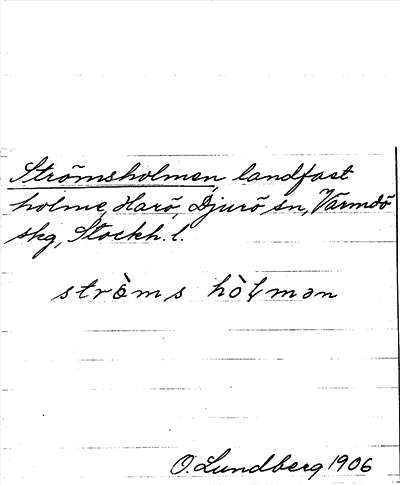 Strömsholmen, landfast
holme, Harö, Djurö sn, Värmdö
skg, Stockh. l.
strò̈ms hòɭmən
O. Lundberg 1906